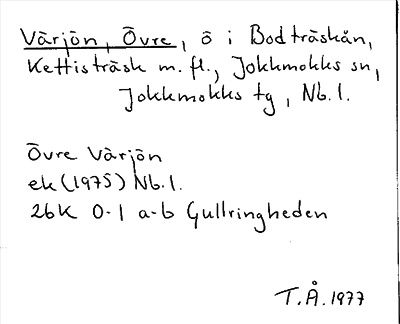 Värjön, Övre, ö i Bodträskån,
Kettisträsk m. fl., Jokkmokks sn,
Jokkmokks tg, Nb. l.
Övre Värjön
ek (1975) Nb. l.
26K 0-1 a-b Gullringheden
T.Å. 1977